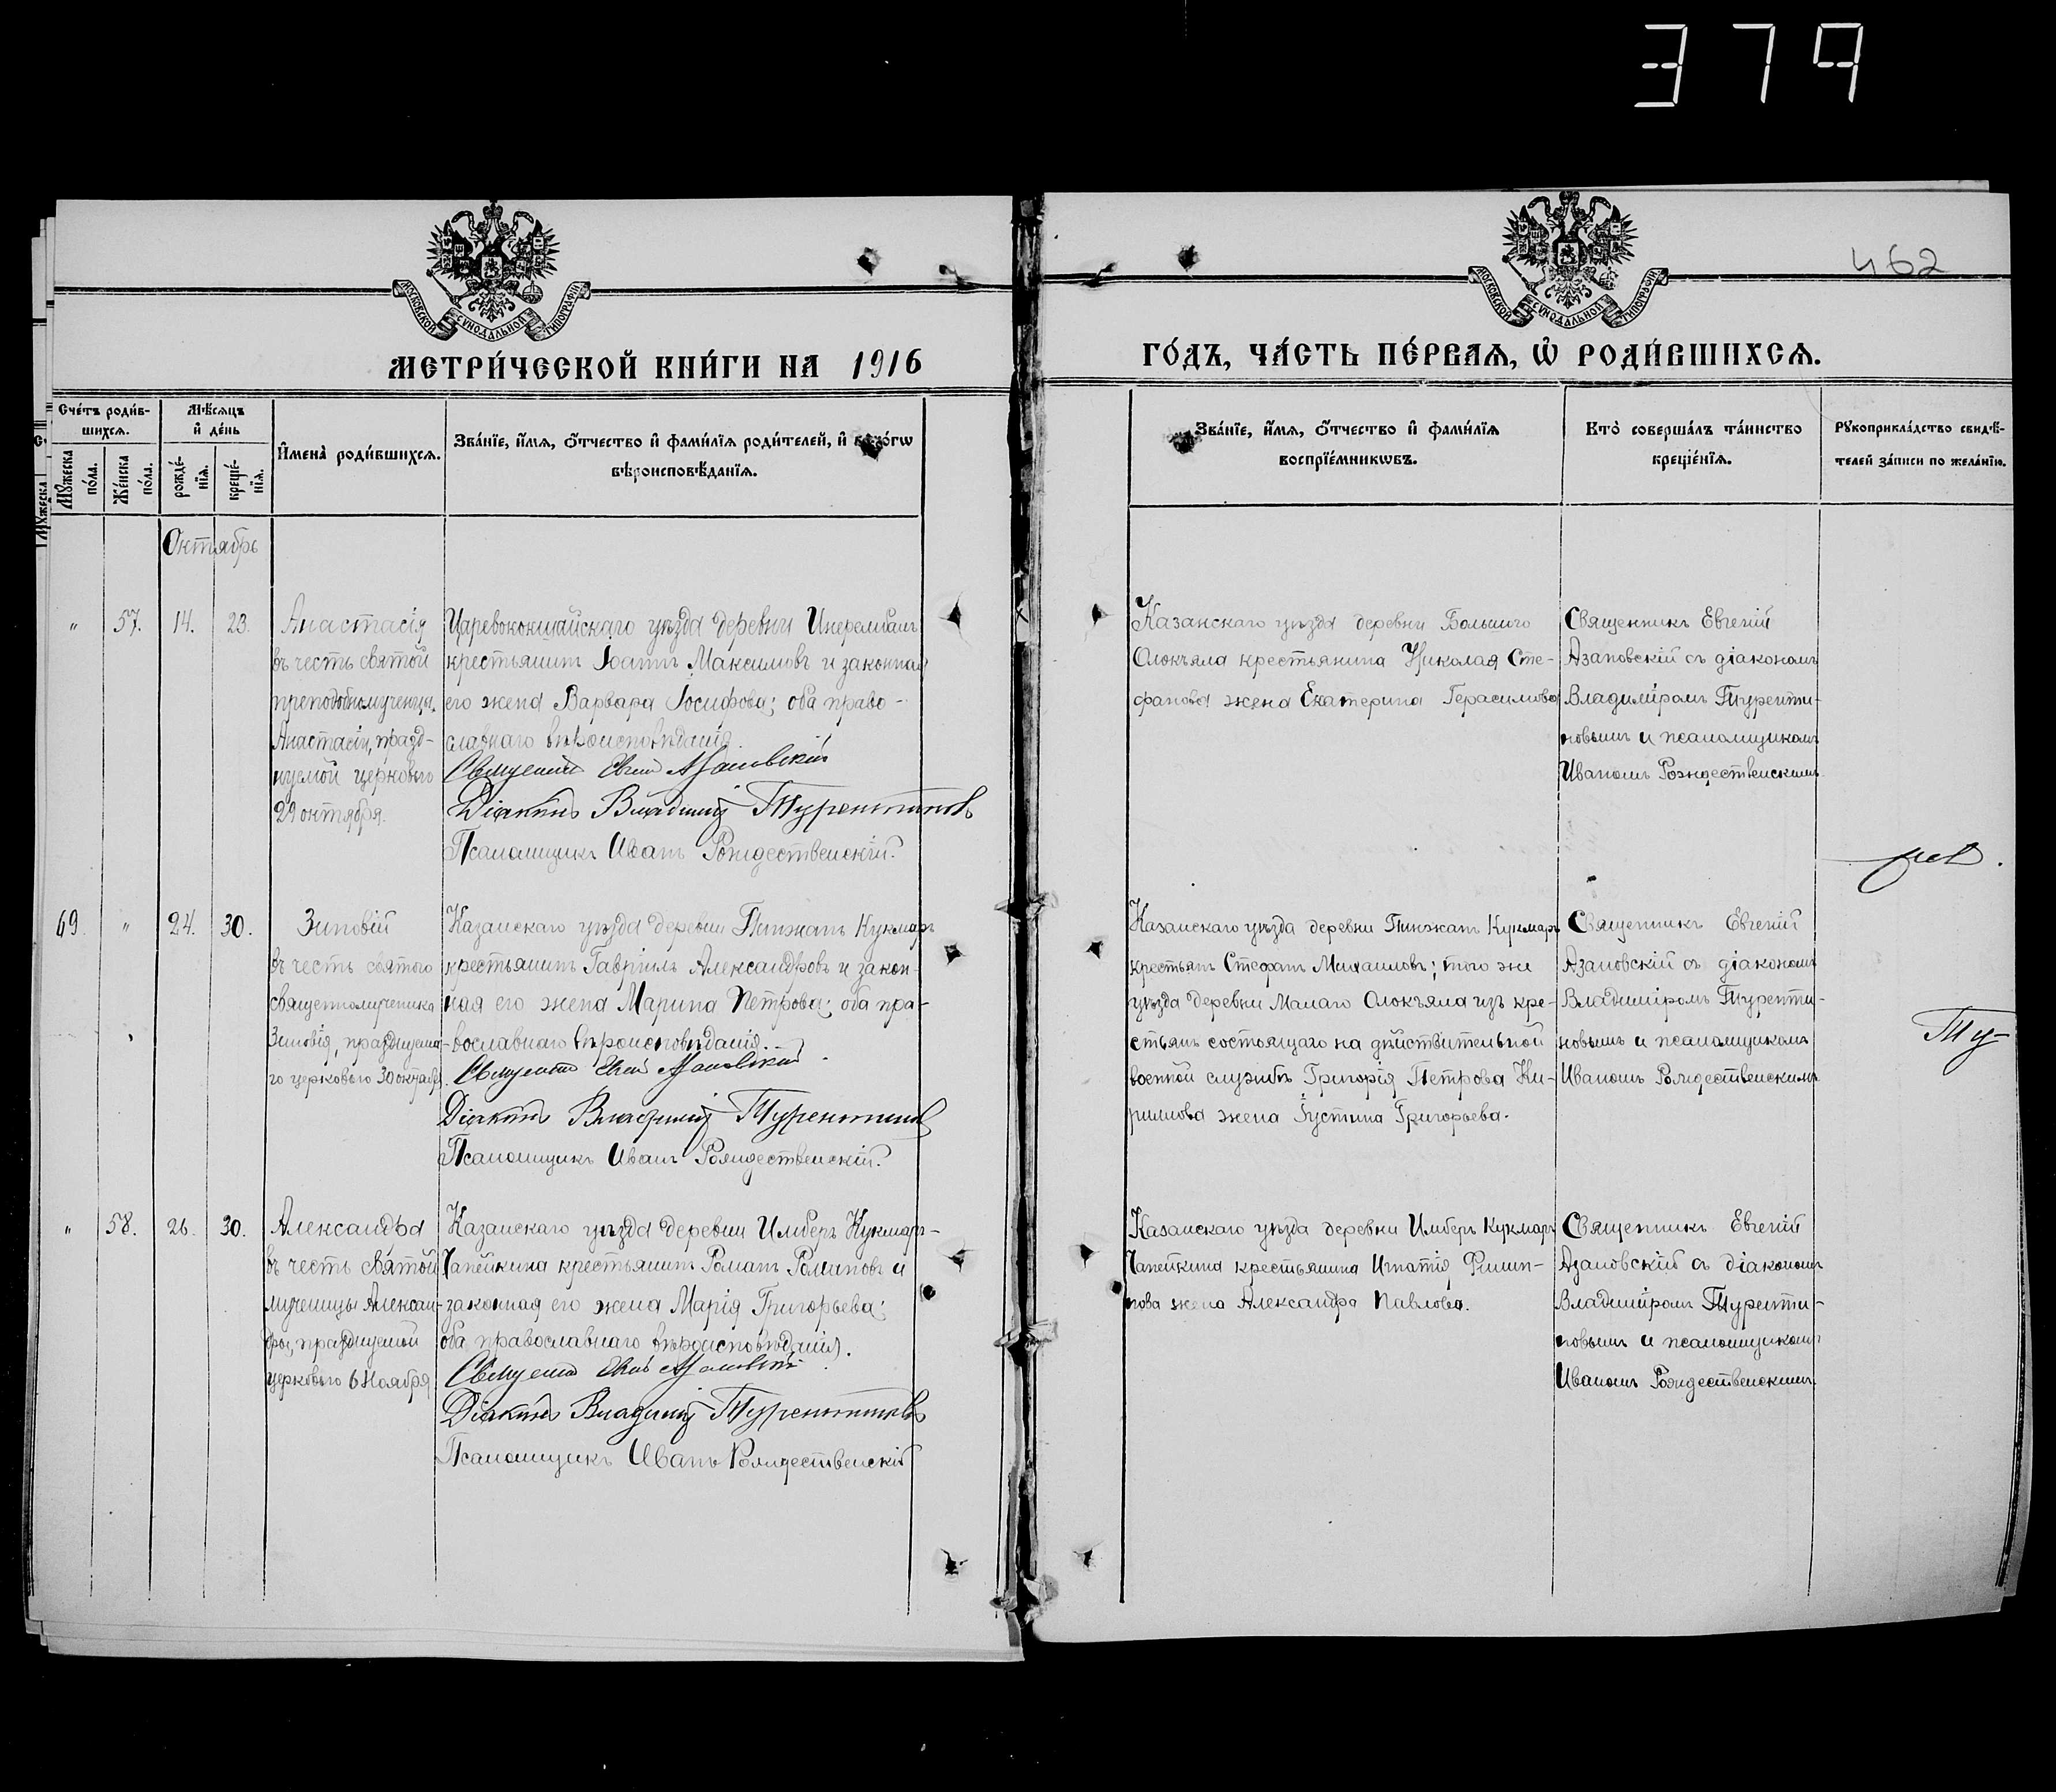 379
462
МОСКОВСКОЙ СѴНОДАЛЬНОЙ ТИПОГРАФІИ
МОСКОВСКОЙ СѴНОДАЛЬНОЙ ТИПОГРАФІИ
МЕТРИ́ЧЕСКОЙ КНИ́ГИ НА 1916
ГО́ДЪ, ЧА́СТЬ ПЕ́РВАѦ, Ѡ҆ РОДИ́ВШИХСѦ.
Сче́тъ роди́в-
шихсѧ.
Мꙋ́жеска по́ла.
Же́нска по́ла.
Мѣ́сѧцъ
и҆ де́нь
рожде́-
нїѧ.
креще́-
нїѧ.
И҆мена̀ роди́вшихсѧ.
Зва́нїе, и҆́мѧ, ѻ҆́тчество и҆ фами́лїѧ роди́телей, и҆ како́гѡ
вѣроисповѣ́данїѧ.
Зва́нїе, и҆́мѧ, ѻ҆́тчество и҆ фами́лїѧ
воспрїе́мникѡвъ.
Кто̀ соверша́лъ та́инство
креще́нїѧ.
Рꙋкоприкла́дство свидѣ́-
телей за́писи по жела́нїю.
Октябрь
" 57. 14. 23.
Анастасія
въ честь святой
преподобномученицы
Анастасіи, празд-
нуемой церковью
29 октября.
Царевококшайскаго уѣзда деревни
крестьянинъ Іоаннъ Максимовъ и законная
его жена Варвара Іосифова; оба право-
славнаго вѣроисповѣданія.
Священникъ Евгеній Азановскій
Діаконъ Владиміръ Турентиновъ
Псаломщикъ Иванъ Рождественскій.
Казанскаго уѣзда деревни Большого
Олокъяла крестьянина Николая Сте-
фанова жена Екатерина Герасимова
Священникъ Евгеній
Азановскій съ діакономъ
Владиміромъ Туренти-
новымъ и псаломщикомъ
Иваномъ Рождественскимъ.
69. " 24. 30.
Зиновій
въ честь святого
священномученика
Зиновія, празднуема-
го церковью 30 октября.
Казанскаго уѣзда деревни Пинжанъ Кукмаръ
крестьянинъ Гавріилъ Александровъ и закон-
ная его жена Марина Петрова; оба пра-
вославнаго вѣроисповѣданія.
Священникъ Евгеній Азановскій
Діаконъ Владиміръ Турентиновъ
Псаломщикъ Иванъ Рождественскій.
Казанскаго уѣзда деревни Пинжанъ Кукмаръ
крестьян. Стефанъ Михаиловъ; того же
уѣзда деревни Малаго Олокъяла изъ кре-
стьянъ состоящаго на дѣйствительной
военной службѣ Григорія Петрова Ки-
риллова жена Іустина Григорьева.
Священникъ Евгеній
Азановскій съ діакономъ
Владиміромъ Туренти-
новымъ и псаломщикомъ
Иваномъ Рождественскимъ
Ту-
" 58. 26. 30.
Александра
въ честь святой
мученицы Алексан-
дры, празднуемой
церковью 6 Ноября
Казанскаго уѣзда деревни Имберъ Кукмаръ-
Чапейкина крестьянинъ Романъ Романовъ и
законная его жена Марія Григорьева;
оба православнаго вѣроисповѣданія.
Священникъ Евгеній Азановскій
Діаконъ Владиміръ Турентиновъ
Псаломщикъ Иванъ Рождественскій
Казанскаго уѣзда деревни Имберъ Кукмаръ
Чапейкина крестьянина Игнатія Филип-
пова жена Александра Павлова.
Священникъ Евгеній
Азановскій съ діакономъ
Владиміромъ Туренти-
новымъ и псаломщикомъ
Иваномъ Рождественскимъ.